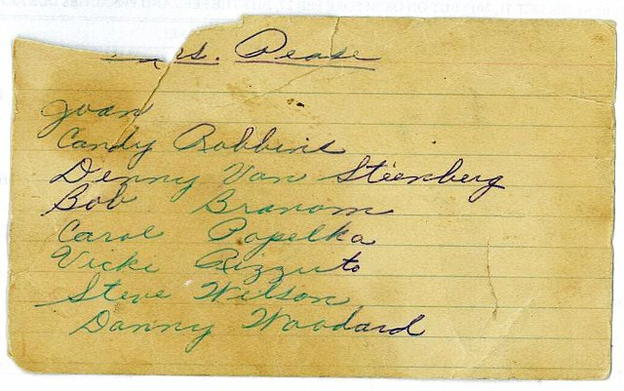 Mrs. Pease
Joan
Candy Robbins
Denny Van Steenberg
Bob Branom
Carol Popelka
Vicki Rizzuto
Steve Wilson
Danny Woodard